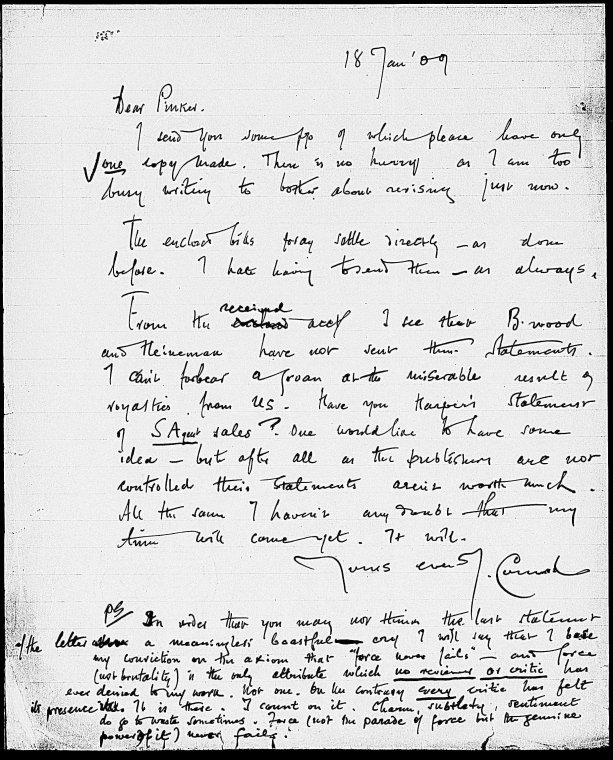 18 Jan '09
Dear Pinker.
I send you some pp of which please have only
one copy made. There is no hurry as I am too
busy writing to bother about revising just now.
The enclosed bills pray settle directly – as done
before. I hate having to send them – as always.
From the received acct I see that B.wood
and Heineman have not sent their statements.
I can't forbear a groan at the miserable result of
royalties from US. Have you Harper's statement
of S Agent sales? One would like to have some
idea – but after all as the publishers are not
controlled their statements aren't worth much.
All the same I haven't any doubt that my
time will come yet. It will.
Yours ever J. Conrad
PS In order that you may not think the last statement
of the letter a meaningless boastful cry I will say that I base
my conviction on the axiom that "force never fails" – and force
(not brutality) is the only attribute which no reviewer or critic has
ever denied to my work. Not one. On the contrary every critic has felt
its presence. It is there. I count on it. Charm, subtlety, sentiment
do go to waste sometimes. Force (not the parade of force but the genuine
power of it) never fails.